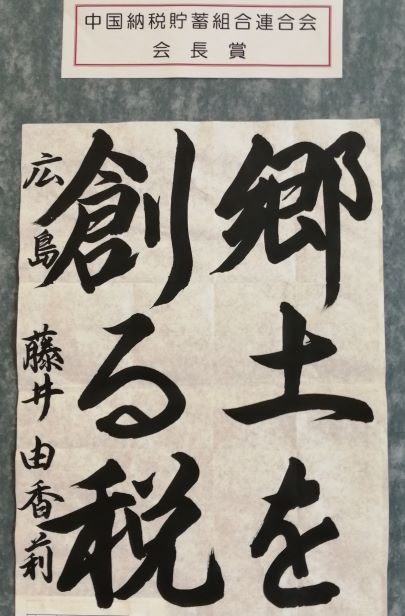 中国納税貯蓄組合連合会
会長賞
郷土を
創る税
広島 藤井由香莉